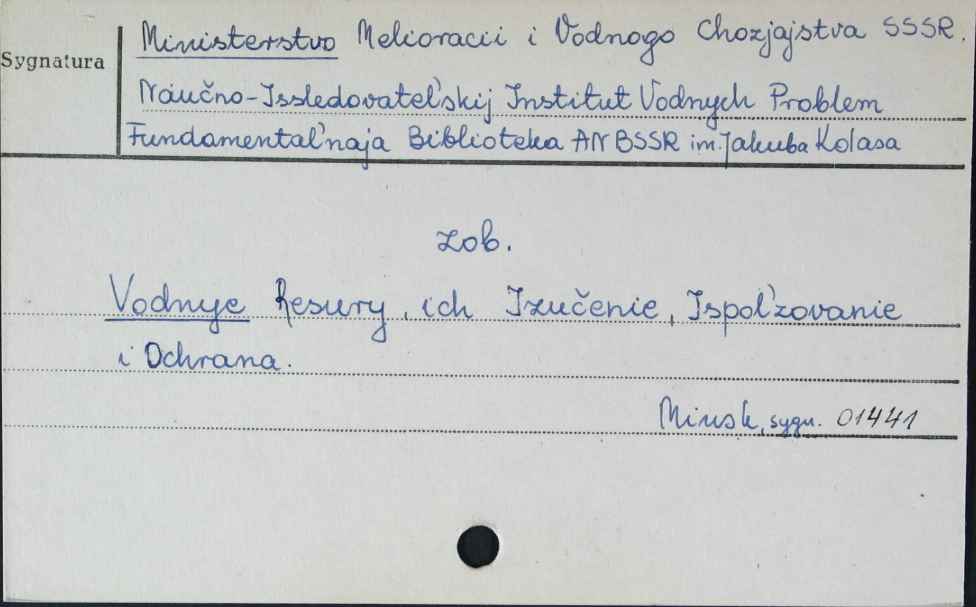 Ministerstvo Melioracii i Vodnogo Chozjajstva SSSR.
Sygnatura
Naučno-Issledovatel'skij Institut Vodnych Problem
Fundamental'naja Biblioteka AN BSSR im. Jakuba Kolasa
zob.
Vodnye Resury, ich Izučenie, Ispol'zovanie
i Ochrana.
Minsk, sygn. 01441